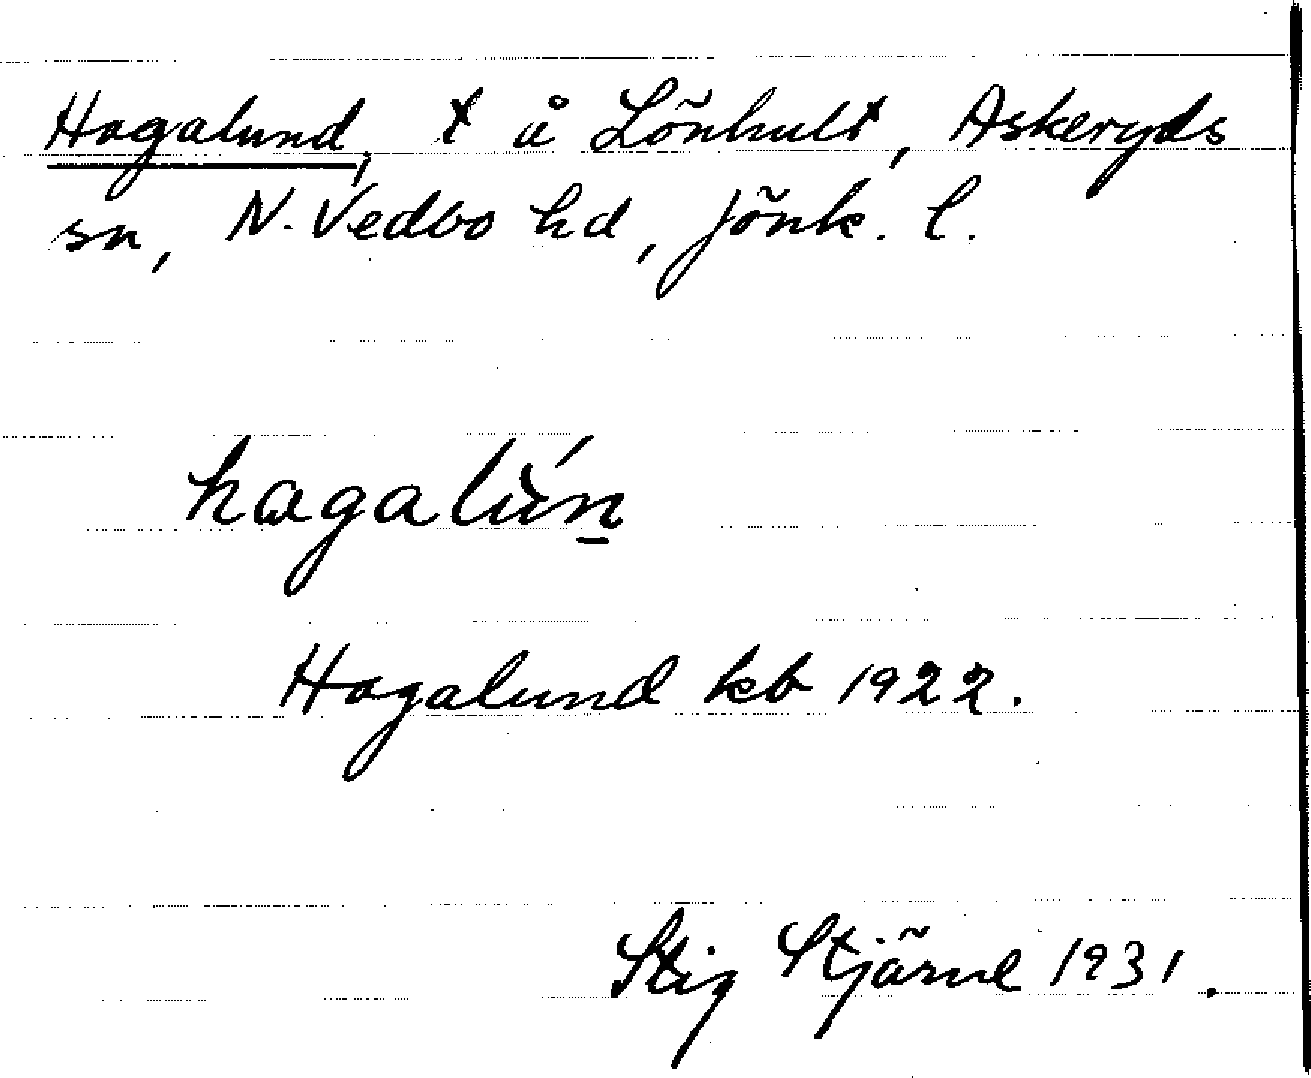 Hagalund, t å Lönhult, Askeryds
sn, N. Vedbo hd, Jönk. l.
hagalún̲
Hagalund kb 1922.
Stig Stjärne 1931.